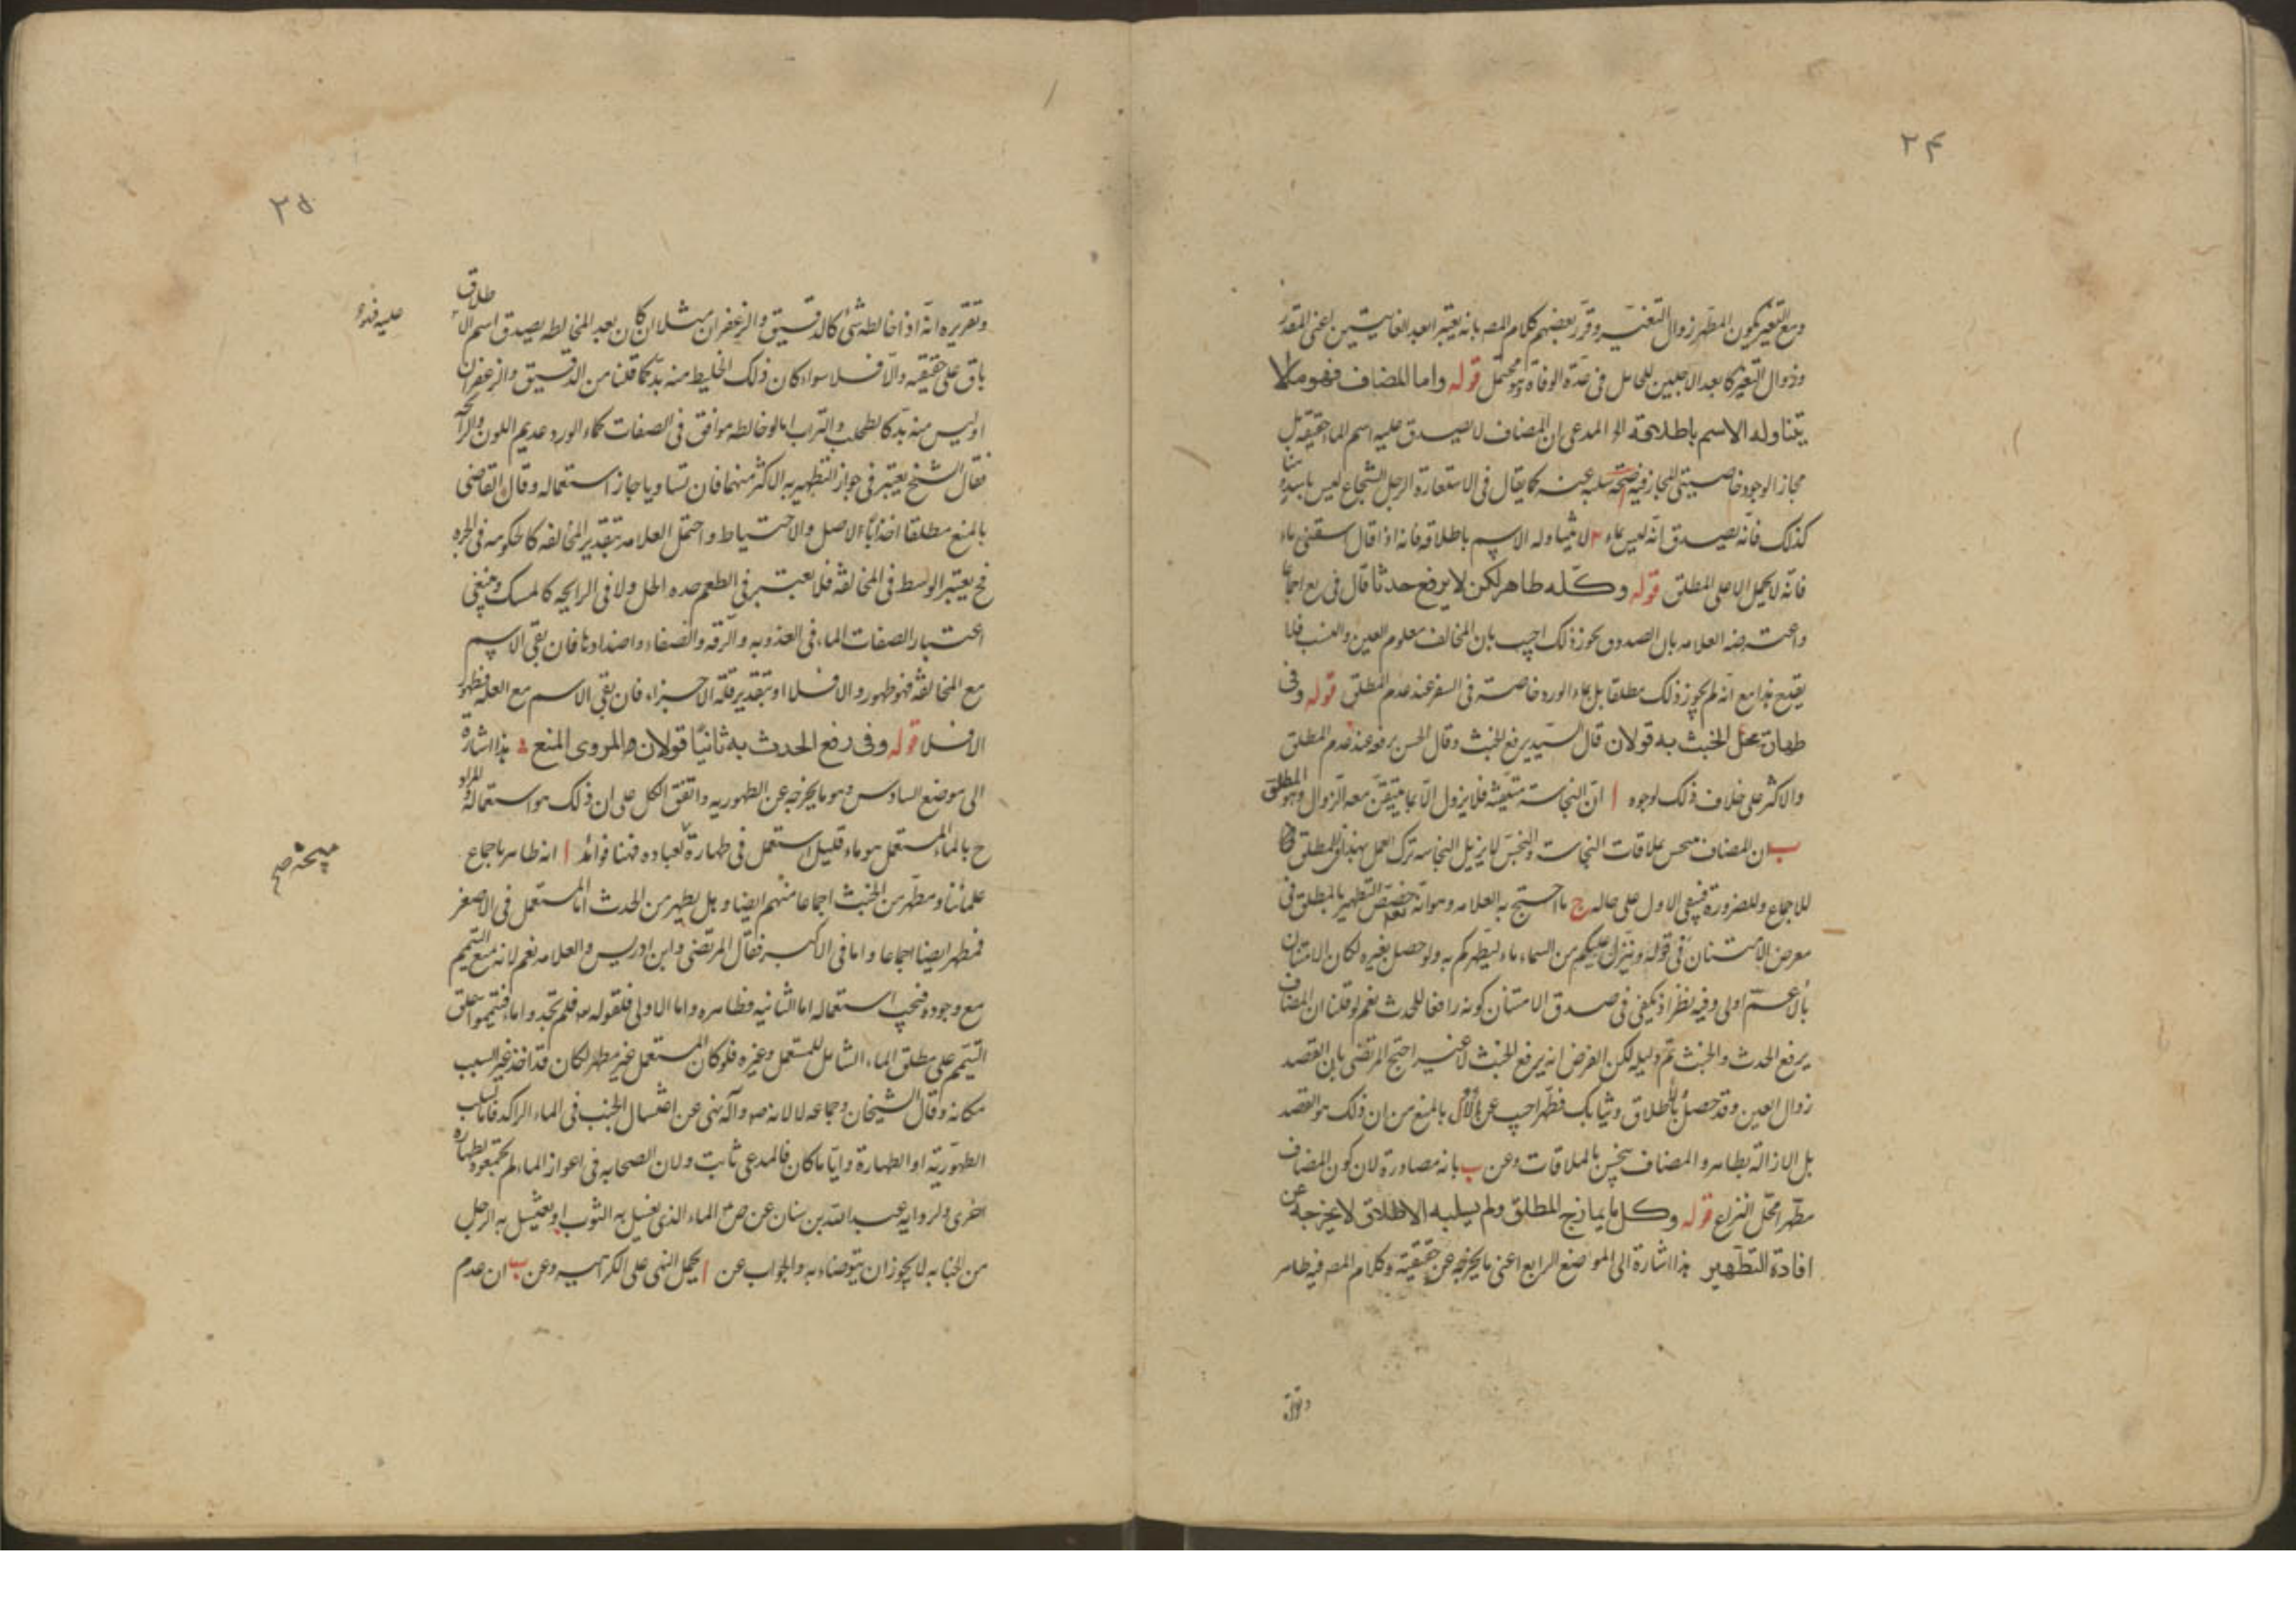 ٢٤
ومع التغير يكون المطهر زوال التغير وقرر بعضهم كلام المص بانه يعتبر ابعد الغايتين اعنى المقدر
وزوال التغير كابعد الاجلين للحامل فى عدة الوفاة وهو محتمل قوله واما المضاف فهو مالا
يتناوله الاسم باطلاقه المدعى ان المضاف لا يصدق عليه اسم الماء حقيقة بل
مجاز الوجود خاصيتى المجاز فيه ا صحة سلبه عنه كما يقال فى الاستعارة الرجل الشجاع ليس باسد هنا
كذلك فانه يصدق انه ليس بماء ٢ لا يتناوله الاسم باطلاقه فانه اذا قال اسقنى ماء
فانه لا يحمل الا على المطلق قوله وكله طاهر لكن لا يرفع حدثا قال فى يع اجماعا
واعترضه العلامه بان الصدوق يجوز ذلك اجيب بان المخالف معلوم العين والنسب فلا
يقدح هذا مع انه لم يجوز ذلك مطلقا بل بماء الورد خاصة فى السفر عند عدم المطلق قوله وفى
طهارة محل الخبث به قولان قال السيد يرفع الخبث وقال الحسن يرفعه عند عدم المطلق
والاكثر على خلاف ذلك لوجوه ا ان النجاسة متيقنة فلا يزول الا بما يتيقن معه الزوال وهو المطلق
ب ان المضاف ينجس بملاقات النجاسة والنجس لا يزيل النجاسه ترك العمل بهذا فى المطلق
للاجماع وللضرورة فيبقى الاول على حاله ج ما احتج به العلامه وهو انه تعالى خصص التطهير بالمطلق فى
معرض الامتنان فى قوله وينزل عليكم من السماء ماء ليطهركم به ولو حصل بغيره لكان الامتنان
بالاعم اولى وفيه نظر اذ يكفى فى صدق الامتنان كونه رافعا للحدث نعم لو قلنا ان المضاف
يرفع الحدث والخبث تم دليله لكن الغرض انه يرفع الخبث لا غير احتج المرتضى بان القصد
زوال العين وقد حصل بالاطلاق وثيابك فطهر اجيب عن الاول بالمنع من ان ذلك هو القصد
بل الازالة بطاهر والمضاف ينجس بالملاقات وعن ب بانه مصادرة لان كون المضاف
مطهرا محل النزاع قوله وكل ما يمازج المطلق ولم يسلبه الاطلاق لا يخرجه عن
افادة التطهير هذا اشارة الى الموضع الرابع اعنى ما يخرجه عن حقيقته وكلام المص فيه ظاهر
وتقريره
٢٥
وتقريره انه اذا خالطه شئ كالدقيق والزعفران مثلا ان كان بعد المخالطه يصدق اسم الاطلاق
باق على حقيقته والا فلا سواء كان ذلك الخليط منه بد كما قلنا من الدقيق والزعفران
او ليس منه بد كالطحلب والتراب اما لو خالطه موافق فى الصفات كماء الورد عديم اللون والرائحة
فقال الشيخ يعتبر فى جواز التطهير به الاكثر منهما فان تساويا جاز استعماله وقال القاضى
بالمنع مطلقا اخذا بالاصل والاحتياط واحتمل العلامه تقدير المخالفه كالحكومه فى الحر
فح يعتبر الوسط فى المخالفة فلا يعتبر فى الطعم حده الخل ولا فى الرايحه كالمسك وينبغى
اعتبار الصفات الماء فى العذوبه والرقه والصفاء واضدادها فان بقى الاسم
مع المخالفة فهو طهور والا فلا او بتقدير قلة الاجزاء فان بقى الاسم مع العله فطهور
الا فلا قوله وفى رفع الحدث به ثانيا قولان والمروى المنع هذا اشارة
الى موضع السادس وهو ما يخرجه عن الطهوريه واتفق الكل على ان ذلك هو استعماله والمراد
ح بالماء المستعمل هو ماء قليل استعمل فى طهارة لعباده فهنا فوائد ا انه طاهر باجماع
علمائنا ومطهر من الخبث اجماعا منهم ايضا وهل يطهر من الحدث اما المستعمل فى الاصغر
فمطهر ايضا اجماعا واما فى الاكبر فقال المرتضى وابن ادريس والعلامه نعم لانه يمنع التيمم
مع وجوده فيجب استعماله اما الثانيه فظاهره واما الاولى فلقوله فلم تجدوا ماء فتيمموا علق
التيمم على مطلق الماء الشامل للمستعمل وغيره فلو كان المستعمل غير مطهر لكان قد اخذ غير السبب
مكانه وقال الشيخان وجماعه لا لانه ص وآله نهى عن اغتسال الجنب فى الماء الراكد فاما لسلب
الطهوريه او الطهارة وايا ما كان فالمدعى ثابت ولان الصحابه فى اعواز الماء لم يجمعوه لطهارة
اخرى ولروايه عبد الله بن سنان عن ص الماء الذى يغسل به الثوب او يغتسل به الرجل
من الجنابه لا يجوز ان يتوضاء به والجواب عن ا يحمل النهى على الكراهيه وعن ب ان عدم